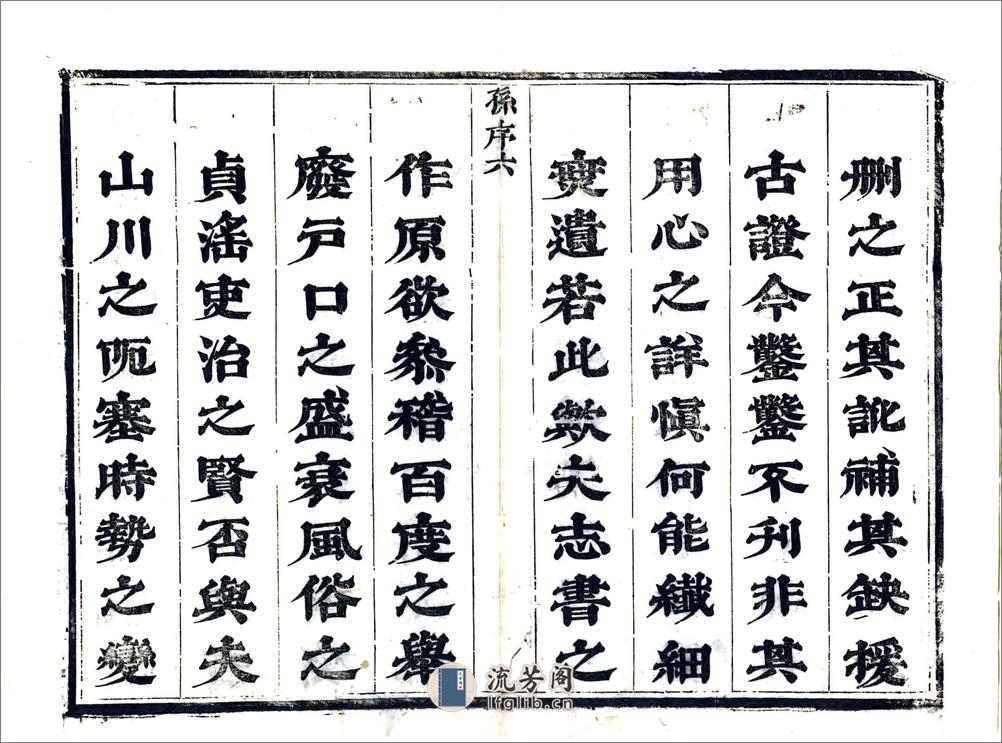 删之正其訛補其缺援
古證今鑿鑿不刋非其
用心之詳愼何能纎細
靡遺若此歟夫志書之
孫序六
作原欲叅稽百度之舉
廢戸口之盛衰風俗之
貞滛吏治之賢否與夫
山川之阨塞時勢之變
流芳阁
lfglib.cn